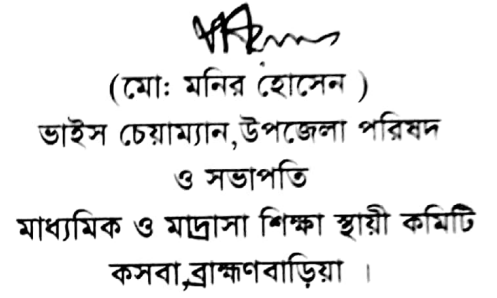 (মোঃ মনির হোসেন )
ভাইস চেয়াম্যান,উপজেলা পরিষদ
ও সভাপতি
মাধ্যমিক ও মাদ্রাসা শিক্ষা স্থায়ী কমিটি
কসবা,ব্রাহ্মণবাড়িয়া ।